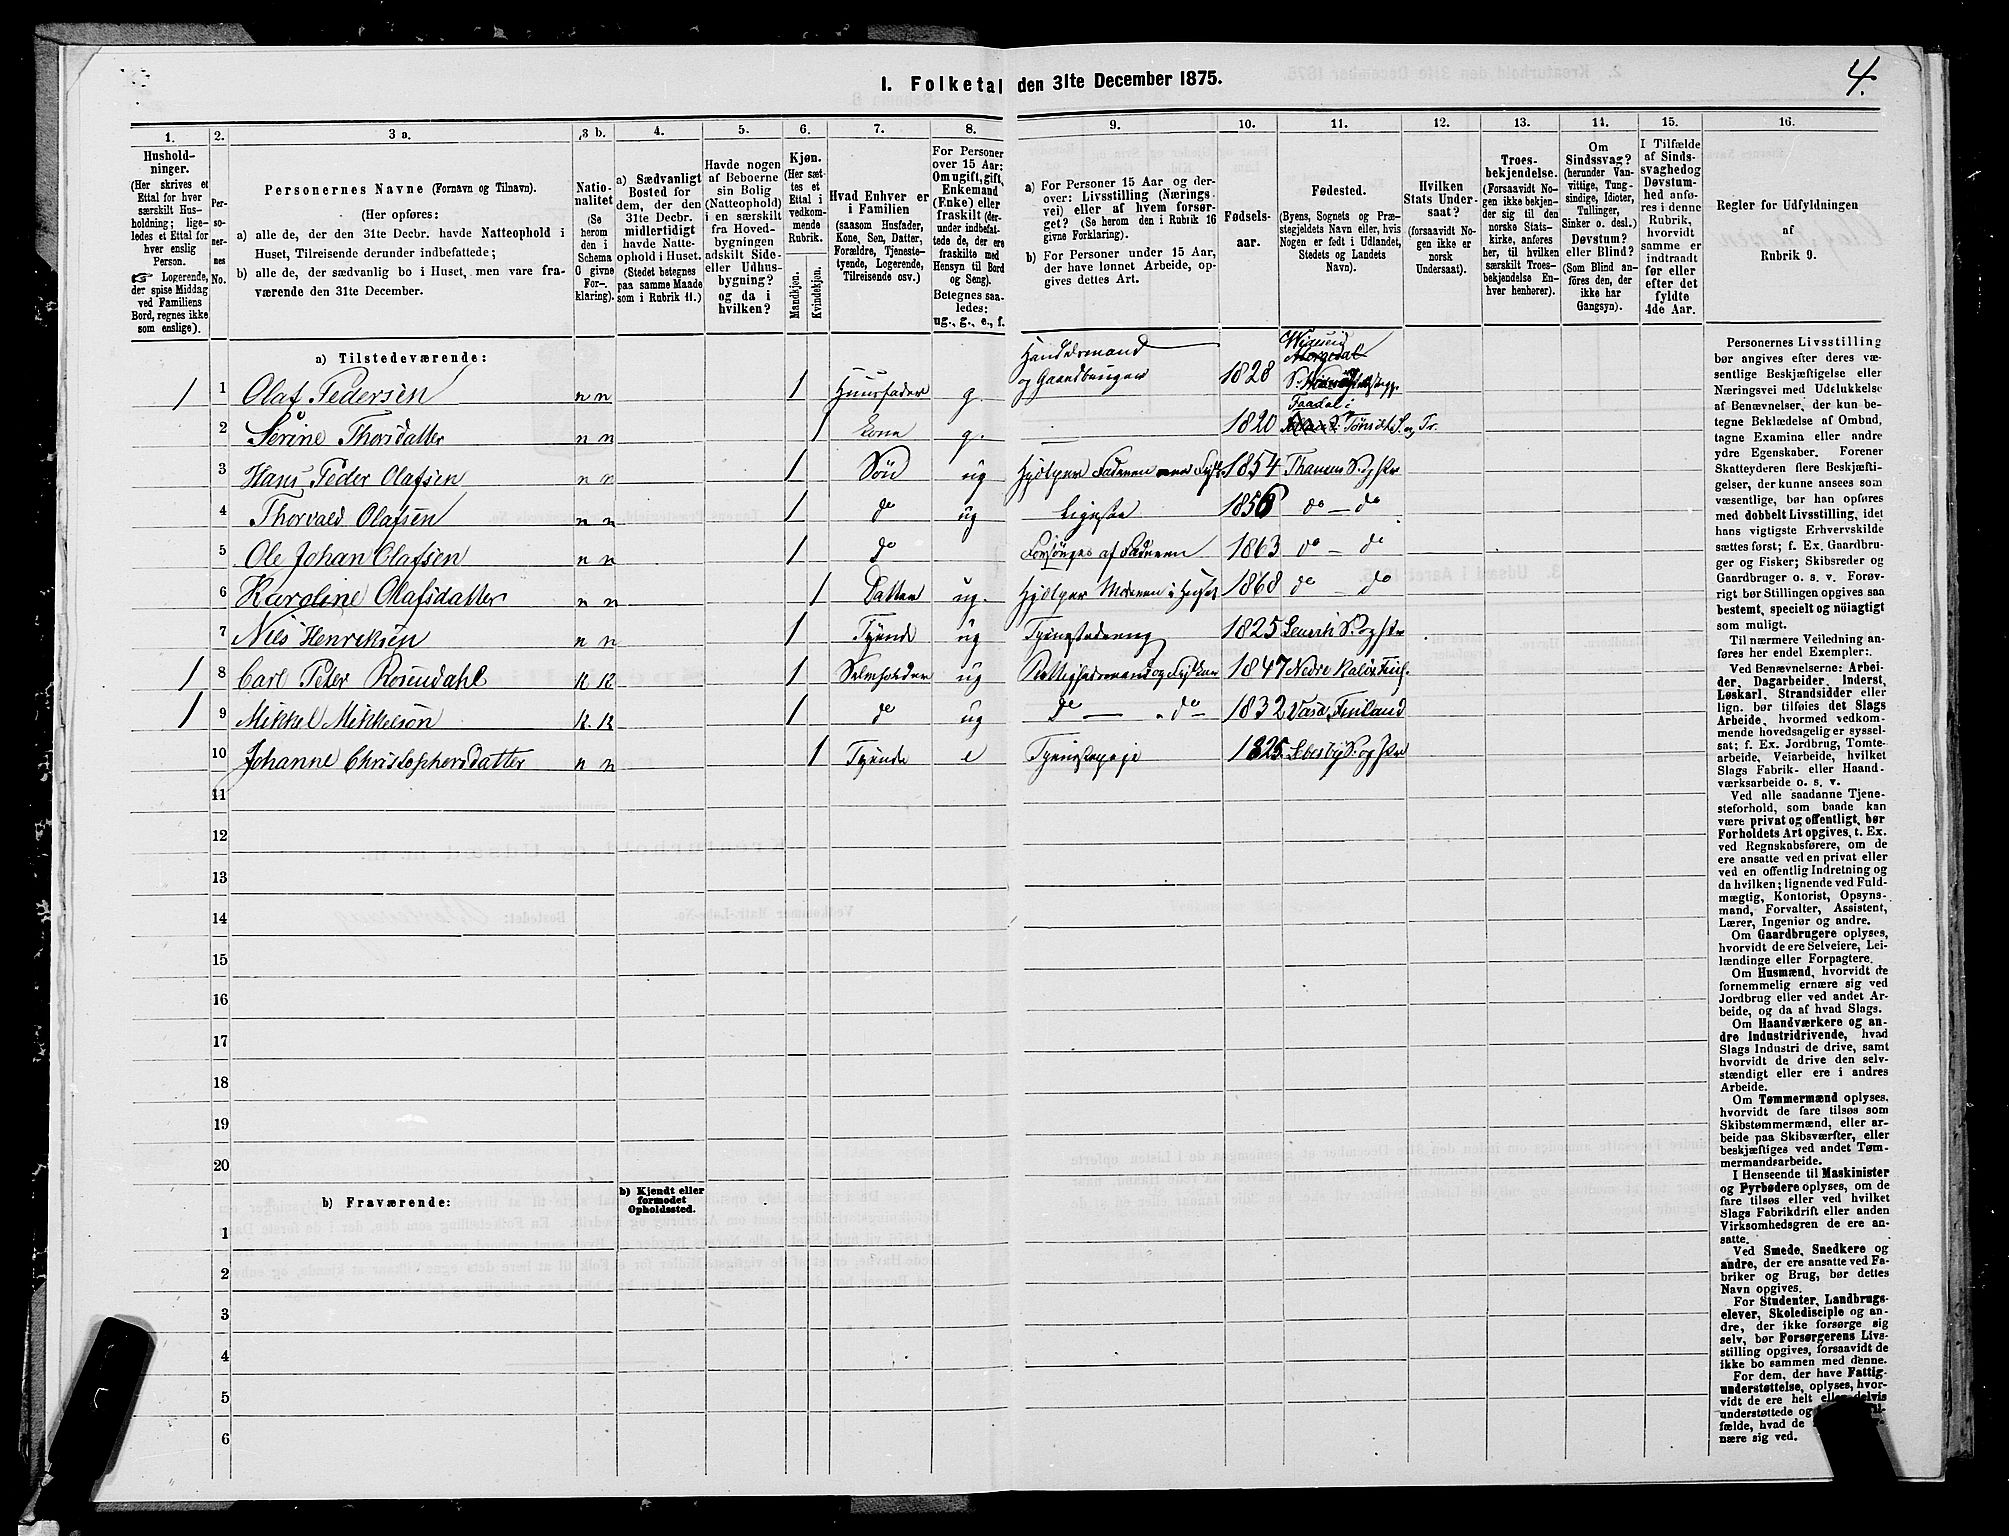 4.
I. Folketal den 31te December 1875.
1.
2.
3 a.
3 b.
4.
5.
6.
7.
8.
9.
10.
11.
12.
13.
14.
15.
16.
Hushold-
ninger.
(Her skrives et
Ettal for hver
særskilt Hus-
holdning; lige-
ledes et Ettal for
hver enslig
Person.
☞ Logerende,
der spise Middag
ved Familiens
Bord, regnes ikke
som enslige).
Per-
so-
ner-
nes
No.
Personernes Navne (Fornavn og Tilnavn).
(Her opføres:
a) alle de, der den 31te Decbr. havde Natteophold i
Huset, Tilreisende derunder indbefattede;
b) alle de, der sædvanlig bo i Huset, men vare fra-
værende den 31te December.
Natio-
nalitet
(Se
herom
den i
Schema
O givne
For-
klaring).
a) Sædvanligt
Bosted for
dem, der den
31te Decbr.
midlertidigt
havde Natte-
ophold i Huset.
(Stedet betegnes
paa samme Maade
som i Rubrik 11.)
Havde nogen
af Beboerne
sin Bolig
(Natteophold)
i en særskilt
fra Hoved-
bygningen
adskilt Side-
eller Udhus-
bygning?
og da i
hvilken?
Kjøn.
(Her sæt-
tes et
Ettal i
vedkom-
mende
Rubrik.
Mandkjøn.
Kvindekjøn.
Hvad Enhver er
i Familien
(saasom Husfader,
Kone, Søn, Datter,
Forældre, Tjeneste-
tyende, Logerende,
Tilreisende osv.)
For Personer
over 15 Aar:
Om ugift, gift,
Enkemand
(Enke) eller
fraskilt (der-
under indbefat-
tede de, der ere
fraskilte med
Hensyn til Bord
og Seng).
Betegnes saa-
ledes:
ug., g., e., f.
a) For Personer 15 Aar og der-
over: Livsstilling (Nærings-
vei) eller af hvem forsør-
get? (Se herom den i Rubrik 16
givne Forklaring).
b) For Personer under 15 Aar,
der have lønnet Arbeide, op-
gives dettes Art.
Fødsels-
aar.
Fødested.
(Byens, Sognets og Præ-
stegjeldets Navn eller, hvis
Nogen er født i Udlandet,
Stedets og Landets
Navn).
Hvilken
Stats Under-
saat?
(forsaavidt No-
gen ikke er
norsk
Undersaat).
Troes-
bekjendelse.
(Forsaavidt No-
gen ikke bekjen-
der sig til den
norske Stats-
kirke, anføres
her, til hvilken
særskilt Troes-
bekjendelse En-
hver henhører).
Om
Sindssvag?
(herunder Van-
vittige, Tung-
sindige, Idioter,
Tullinger,
Sinker o. desl.)
Døvstum?
eller Blind?
(Som Blind an-
føres den, der
ikke har
Gangsyn).
I Tilfælde
af Sinds-
svaghed og
Døvstum-
hed anfø-
res i denne
Rubrik,
hvorvidt
samme er
indtraadt
før eller
efter det
fyldte
4de Aar.
Regler for Udfyldningen
af
Rubrik 9.
a) Tilstedeværende:
1 1 Olaf Pedersen n n 1 Huusfader g. Handelsmand og Gaardbruger 1828
2 Serine Thorsdatter n n 1 Kone g. 1820
3 Hans Peder Olafsen n n 1 Søn ug Hjelper Faderen 1854 Thanens S. og Pr
4 Thorvald Olafsen n n 1 do ug Ligesaa 1856 do — do
5 Ole Johan Olafsen n n 1 do Forsørges af Faderen 1863 do — do
6 Karoline Olafsdatter n n 1 Datter ug. Hjelper Moderen i Huset 1868 do do
7 Nils Henriksen n n 1 Tyende ug Tjenestedreng 1825
1 8 Carl Peter Rosendahl k k 1 ug 1847 Nedre
1 9 Mikkel Mikkelsen k. k 1 do ug do — do 1832 Vasa, Finland
10 Johanne Christophersdatter n n 1 Tyende e Tjenestepige 1825. Lebesby S. og Pr
11
12
13
14
15
16
17
18
19
20
b) Fraværende:
b) Kjendt eller
formodet
Opholdssted.
1
2
3
4
5
6
Personernes Livsstilling
bør angives efter deres væ-
sentlige Beskjæftigelse eller
Næringsvei med Udelukkelse
af Benævnelser, der kun be-
tegne Beklædelse af Ombud,
tagne Examina eller andre
ydre Egenskaber. Forener
Skatteyderen flere Beskjæfti-
gelser, der kunne ansees som
væsentlige, bør han opføres
med dobbelt Livsstilling, idet
hans vigtigste Erhvervskilde
sættes først; f. Ex. Gaardbru-
ger og Fisker; Skibsreder og
Gaardbruger o. s. v. Forøv-
rigt bør Stillingen opgives saa
bestemt, specielt og nøiagtigt
som muligt.
Til nærmere Veiledning an-
føres her endel Exempler:
Ved Benævnelserne: Arbei-
der, Dagarbeider, Inderst,
Løskarl, Strandsidder eller
lign. bør tilføies det Slags
Arbeide, hvormed vedkom-
mende hovedsagelig er syssel-
sat; f. Ex. Jordbrug, Tomte-
arbeide, Veiarbeide, hvilket
Slags Fabrik- eller Haand-
værksarbeide o. s. v.
Ved alle saadanne Tjene-
steforhold, som baade kan
være privat og offentligt, bør
Forholdets Art opgives, t. Ex.
ved Regnskabsførere, om de
ere ansatte ved en privat eller
ved en offentlig Indretning og
da hvilken; lignende ved Fuld-
mægtig, Kontorist, Opsyns-
mand, Forvalter, Assistent,
Lærer, Ingeniør og andre.
Om Gaardbrugere oplyses,
hvorvidt de ere Selveiere, Lei-
lændinge eller Forpagtere.
Om Husmænd, hvorvidt de
fornemmelig ernære sig ved
Jordbrug eller ved andet Ar-
beide, og da af hvad Slags.
Om Haandværkere og an-
dre Industridrivende, hvad
Slags Industri de drive, samt
hvorvidt de drive den selv-
stændigt eller ere i andres
Arbeide.
Om Tømmermænd oplyses,
hvorvidt de fare tilsøs som
Skibstømmermænd, eller ar-
beide paa Skibsværfter, eller
beskjæftiges ved andet Tøm-
mermandsarbeide.
I Henseende til Maskinister
og Fyrbødere oplyses, om de
fare tilsøs eller ved hvilket
Slags Fabrikdrift eller anden
Virksomhedsgren de ere an-
satte.
Ved Smede, Snedkere og
andre, der ere ansatte ved Fa-
briker og Brug, bør dettes
Navn opgives.
For Studenter, Landbrugs-
elever, Skoledisciple og an-
dre, der ikke forsørge sig
selv, bør Forsørgerens Livs-
stilling opgives, forsaavidt de
ikke bo sammen med denne.
For dem, der have Fattig-
understøttelse, oplyses, hvor-
vidt de ere helt eller delvis
understøttede og
fælde, hvad de
nære sig ved.